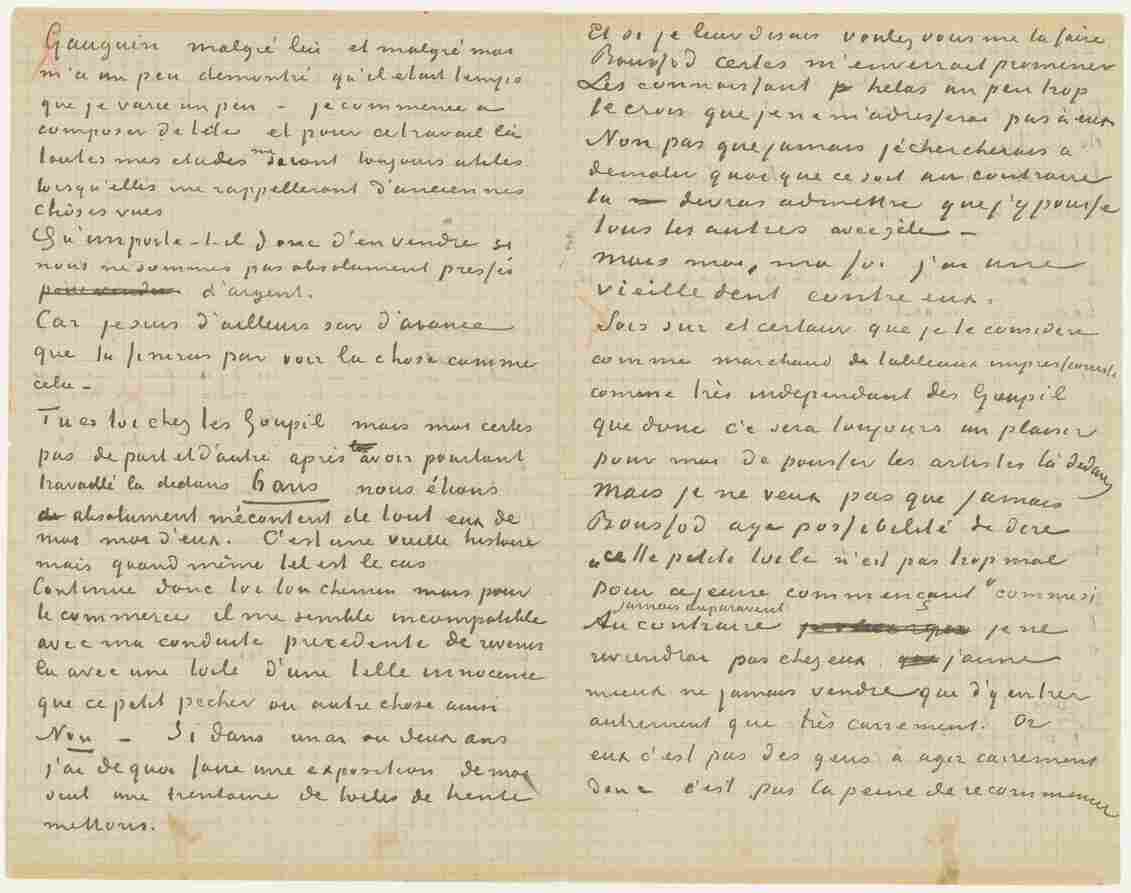 Gauguin malgré lui et malgré moi
m'a un peu demontré qu'il était temps
que je varie un peu – je commence à
composer de tête et pour ce travail là
toutes mes etudes me seront toujours utiles
lorsqu'elles me rappelleront d'anciennes
choses vues
Qu'importe-t-il donc d'en vendre si
nous ne sommes pas absolument pressés
d'argent.
Car je suis d'ailleurs sur d'avance
que tu finiras par voir la chose comme
cela –
Tu es toi chez les Goupil mais moi certes
pas de part et d'autre après avoir pourtant
travaillé la dedans 6 ans nous étions
absolument mécontent de tout eux de
moi moi d'eux. C'est une vieille histoire
mais quand même tel est le cas
Continue donc toi ton chemin mais pour
le commerce il me semble incompatible
avec ma conduite precedente de revenir
là avec une toile d'une telle innocence
que ce petit pecher ou autre chose ainsi
Non – Si dans un an ou deux ans
j'ai de quoi faire une exposition de moi
seul une trentaine de toiles de trente
mettons.
Et si je leur disais voulez vous me la faire
Boussod certes m'enverrait promener
Les connaissant helas un peu trop
je crois que je ne m'adresserai pas à eux
Non pas que jamais je chercherais a
demolir quoi que ce soit au contraire
tu devras admettre que j'y pousse
tous les autres avec zèle –
Mais moi, ma foi j'ai une
vieille dent contre eux.
Sois sur et certain que je te considère
comme marchand de tableaux impressionniste
comme très independant des Goupil
que donc ce sera toujours un plaisir
pour moi de pousser les artistes là dedans
Mais je ne veux pas que jamais
Boussod aye possibilité de dire
„cette petite toile n'est pas trop mal
pour ce jeune commençant" comme si
jamais auparavant
Au contraire je ne
reviendrai pas chez eux. j'aime
mieux ne jamais vendre que d'y entrer
autrement que très carrement. Or
eux c'est pas des gens à agir carrement
donc c'est pas la peine de recommencer